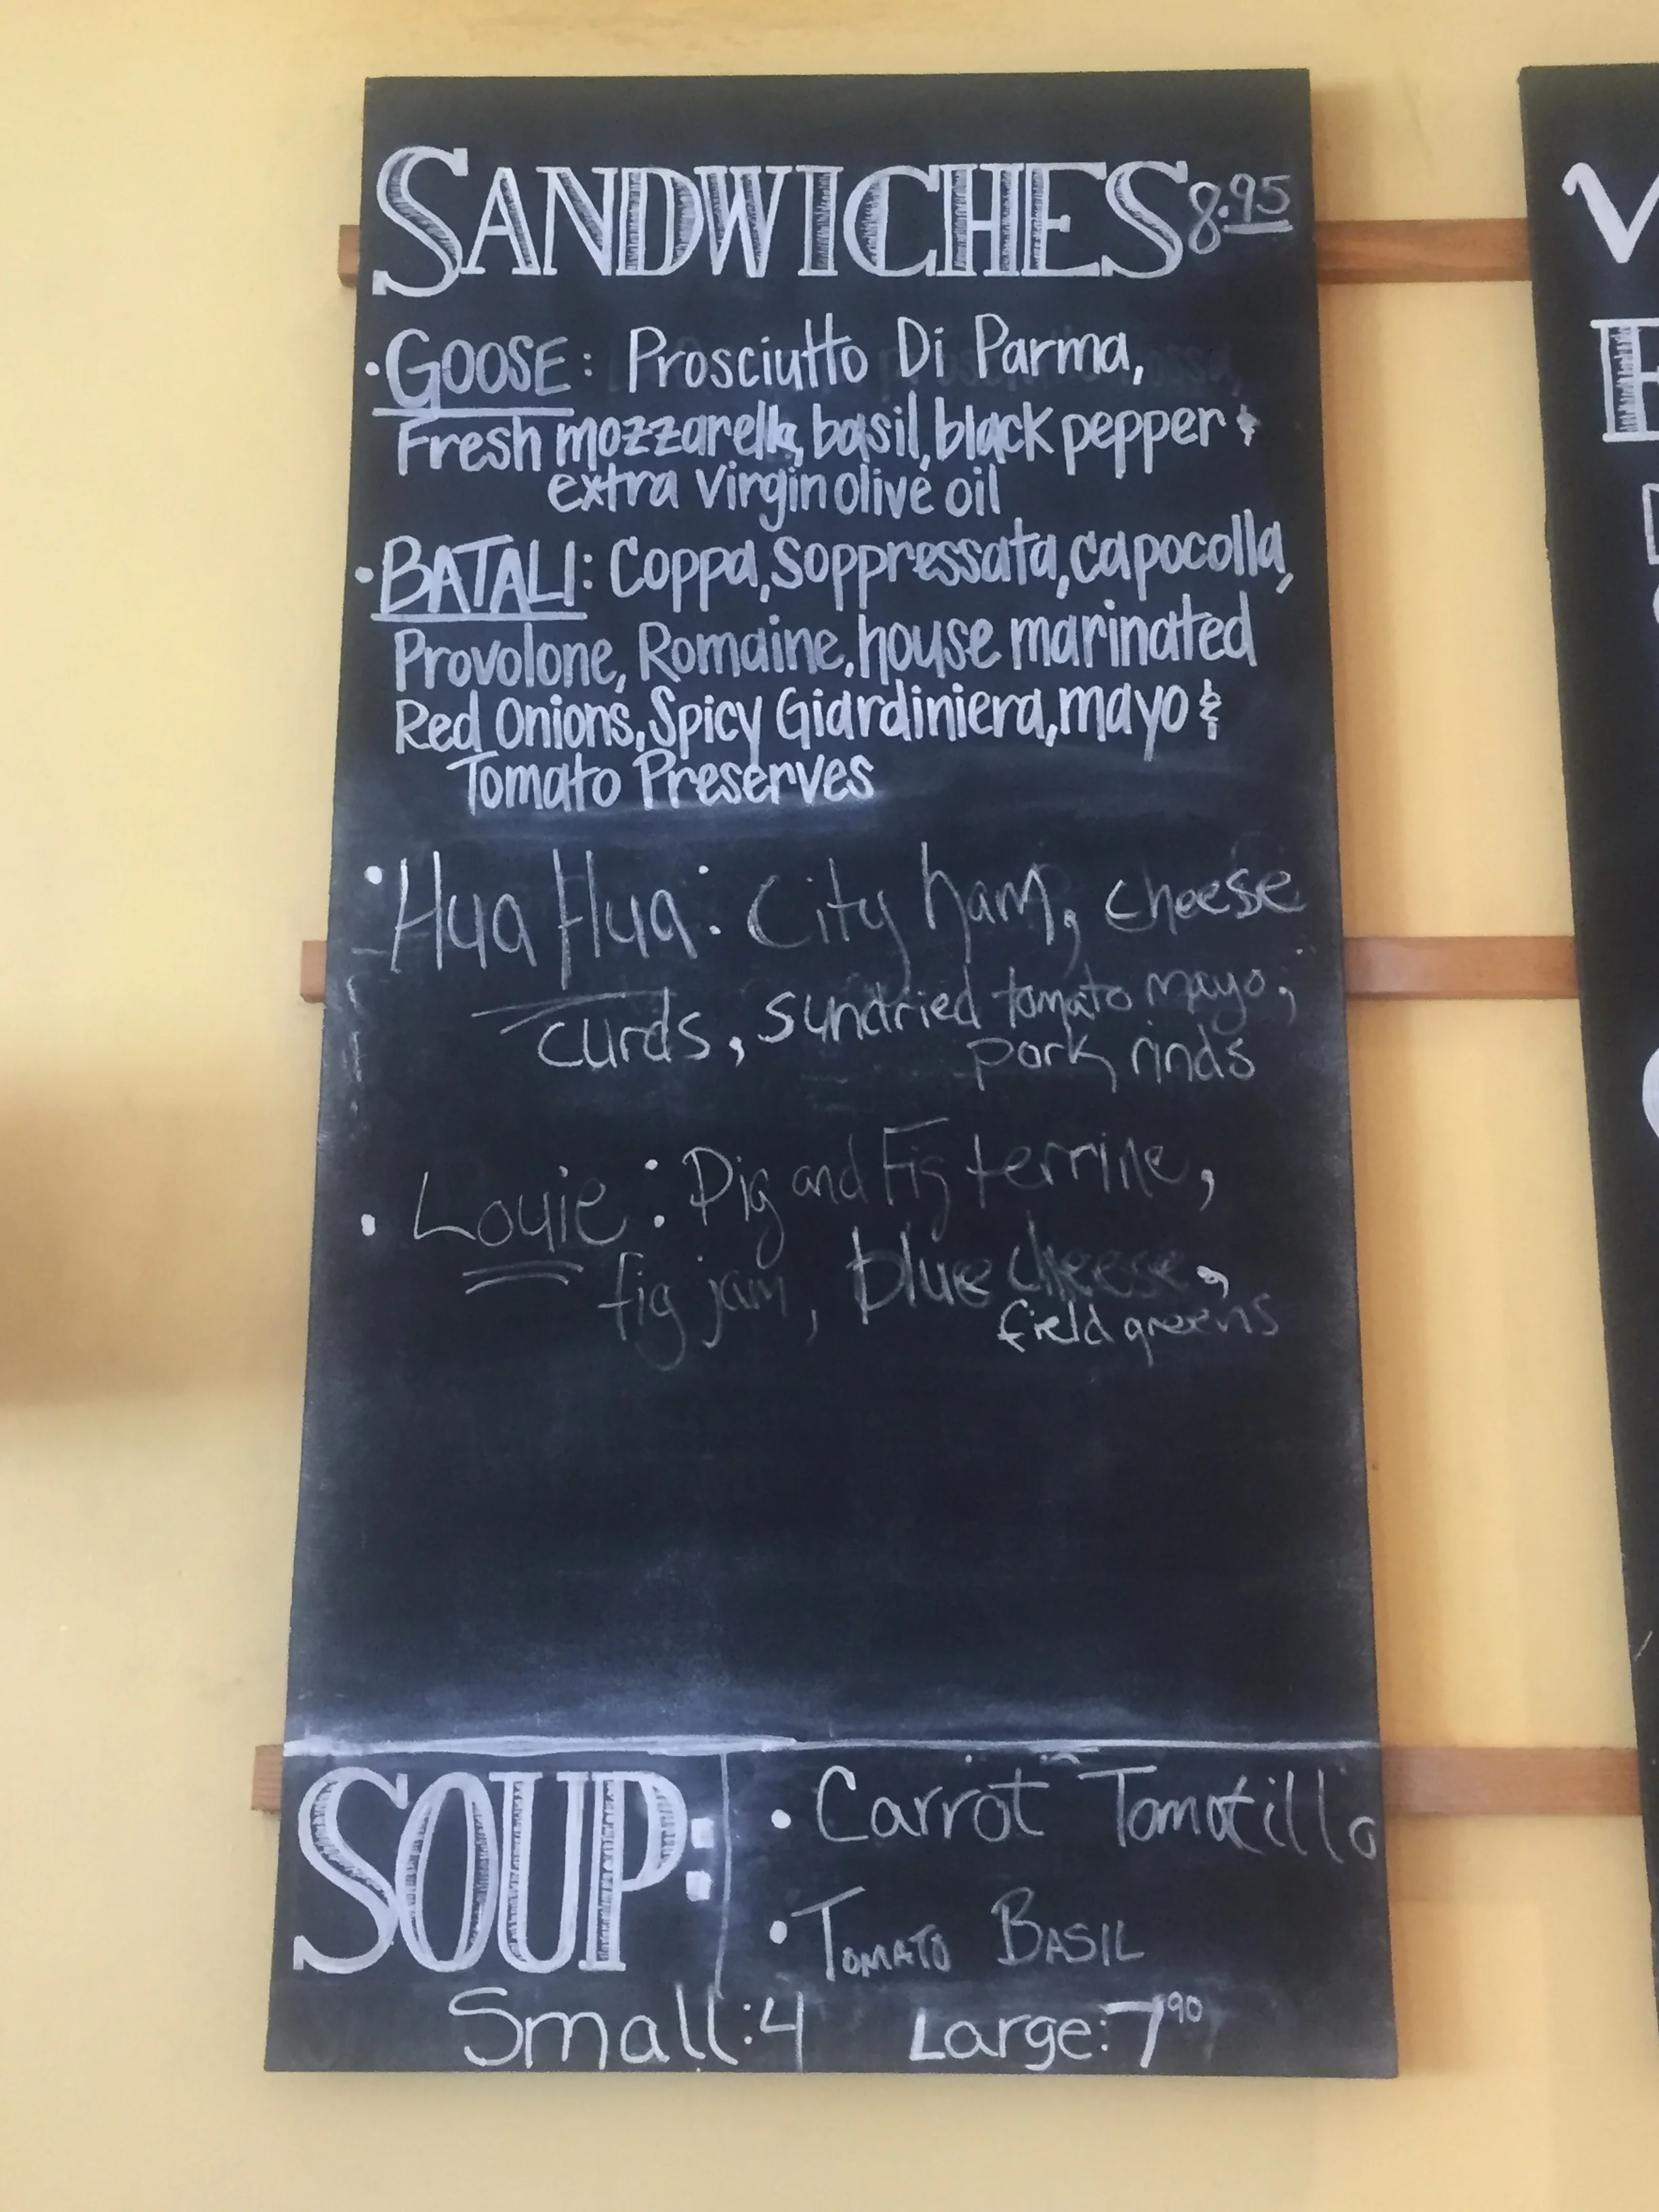 SANDWICHES 8.95
• GOOSE: Prosciutto Di Parma,
Fresh mozzarella, basil, black pepper &
extra virgin olive oil
• BATALI: Coppa, Soppressata, capocolla,
Provolone, Romaine, house marinated
Red Onions, Spicy Giardiniera, mayo &
Tomato Preserves
• Hua Hua: City ham, cheese
curds, sundried tomato mayo,
pork rinds
• Louie: Pig and Fig terrine,
fig jam, blue cheese,
field greens
SOUP:
• Carrot Tomatillo
• TOMATO BASIL
Small: 4 Large: 7 90